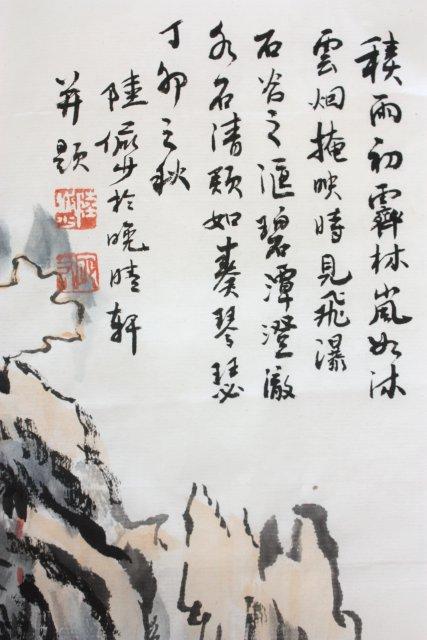 積雨初霽林嵐如沐
雲烟掩映時見飛瀑
石谷之滙碧潭澄澈
水石清頴如奏琴瑟
丁卯之秋
陸儼少於晚晴軒
并題